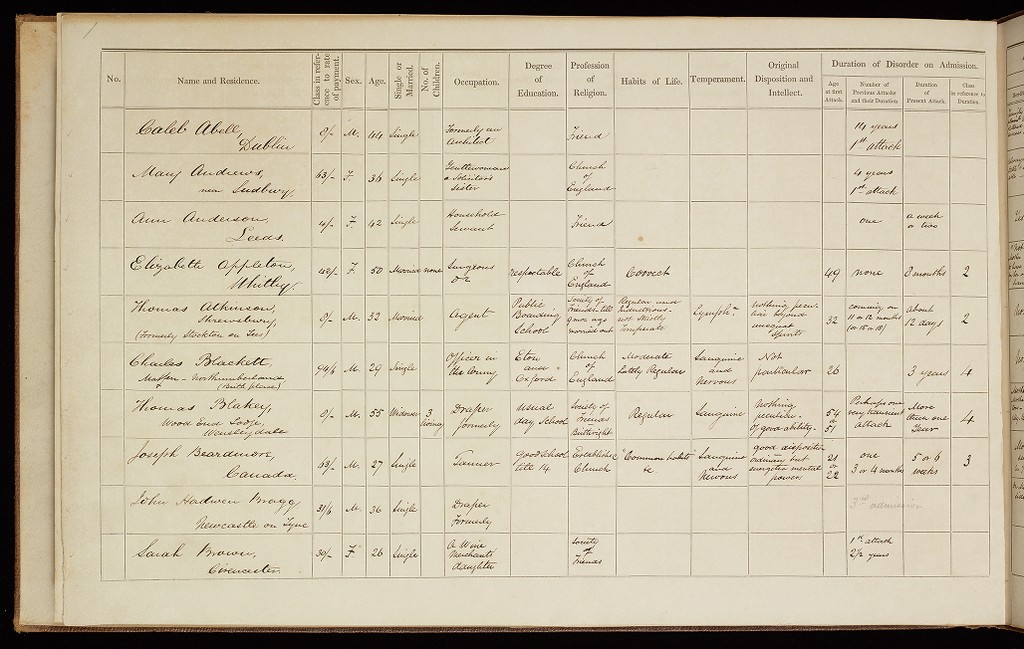 No.
Name and Residence.
Class in reference to rate of payment.
Sex.
Age.
Single or Married.
No. of Children.
Occupation.
Degree of Education.
Profession of Religion.
Habits of Life.
Temperament.
Original Disposition and Intellect.
Duration of Disorder on Admission.
Age at first Attack.
Number of Previous Attacks and their Duration
Duration of Present Attack.
Class in reference to Duration.
Caleb Abell, 8/- M. 44 Single Formerly an Friend 14 years
Dublin architect 1st attack
Mary Andrews, 63/- F. 36 Single Gentlewoman Church 4 years
near Sudbury. a Solicitor's of 1st attack
Sister England
Ann Anderson, 4/- F. 42 Single Household Friend one a week
Leeds. Servant or two
Elizabeth Appleton, 42/- F. 50 Married none Surgeons respectable Church Correct 49 none 8 months 2
Whitby. of
England
Thomas Atkinson, 9/- M. 32 Married Agent Public Society of Regular and Lymph. nothing pecu- 32 coming on About 2
Shrewsbury, Boarding Friends till industrious. liar beyond 11 or 12 months 12 days
(Formerly Stockton on Tees) School ago not strictly unequal
married out Temperate Spirits
Charles Blackett, 94/6 M. 29 Single Officer in Eton Church Moderate Sanguine Not 26 3 years 4
Matfen - Northumberland the Army and of Lately Regular and particular
(Birth place) Oxford England Nervous
Thomas Blakey, 9/- M. 55 Widower 3 Draper usual Society of Regular Sanguine Nothing 54 Perhaps one More 4
Wood End Lodge, living formerly day School Friends peculiar. or very transient than one
Wensleydale Birthright of good ability. 51 attack Year
Joseph Beardmore, 63/- M. 27 Single Tanner Good School Established "Common habits Sanguine good disposition 21 one 5 or 6 3
Canada. till 14 Church and ordinary but or 3 or 4 months weeks
Nervous energetic mental 22
powers
John Hadwen Bragg 31/6 M. 36 Single Draper 3rd admission
Newcastle on Tyne Formerly
Sarah Brown, 30/- F. 26 Single A Wine Society 1st attack
Cirencester. Merchants of 2½ years
daughter Friends